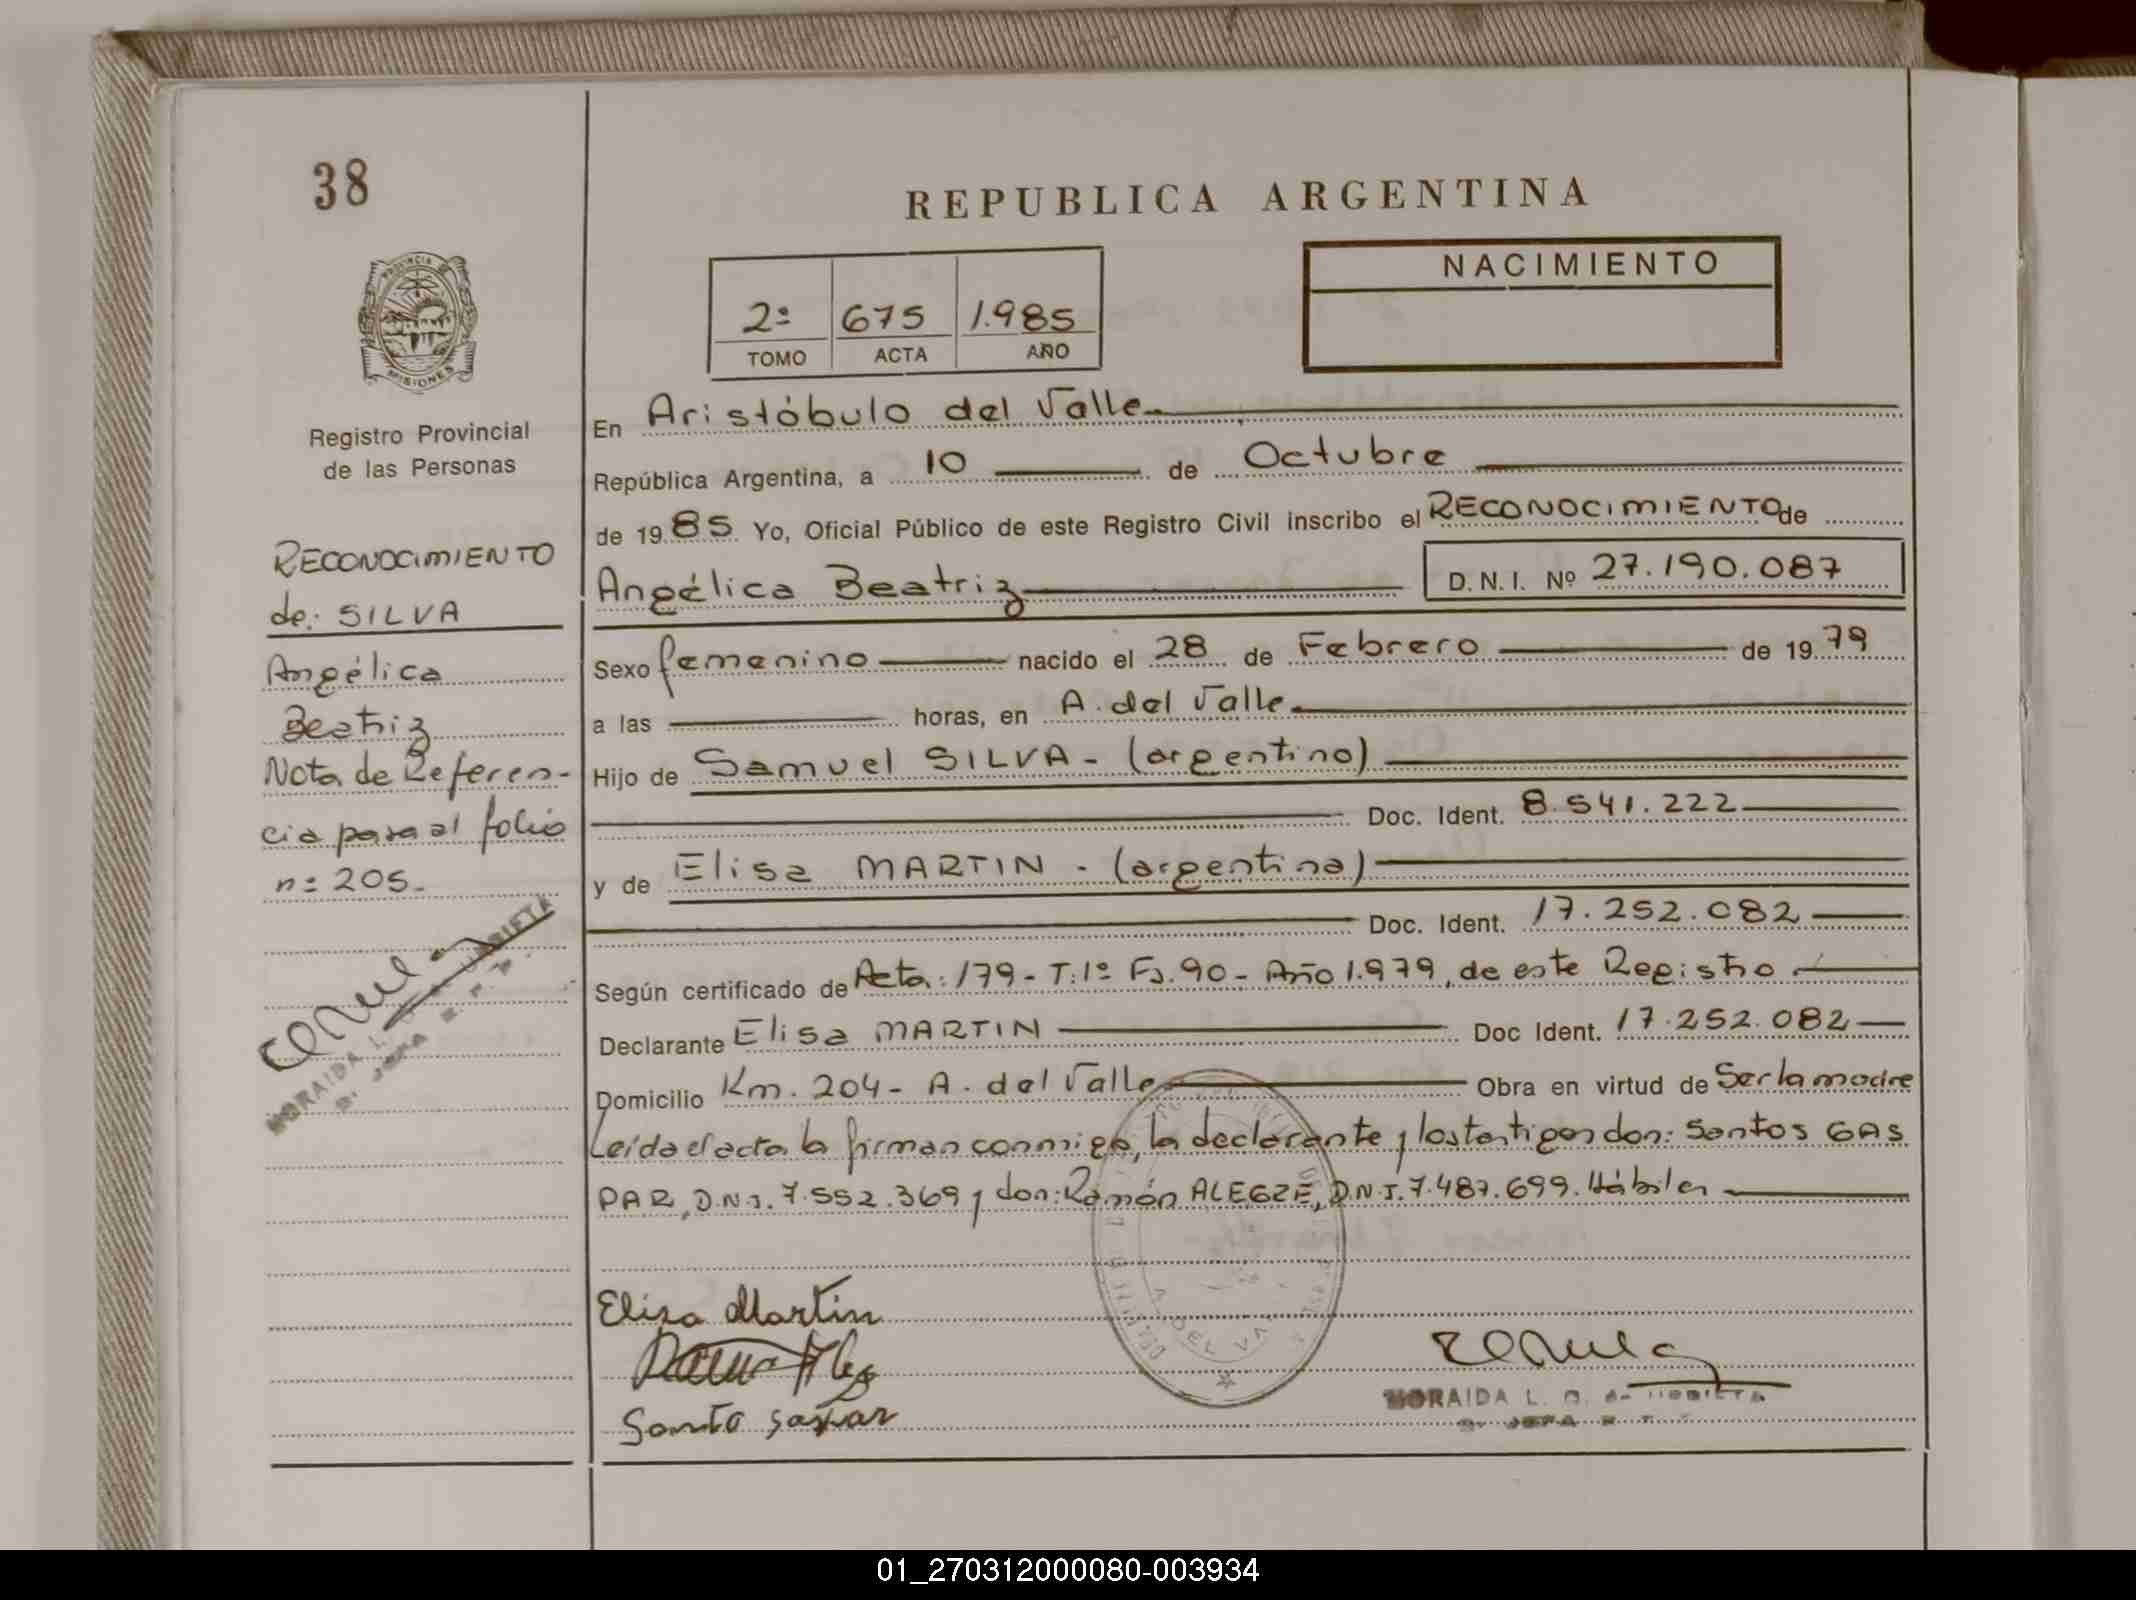 38
REPUBLICA ARGENTINA
PROVINCIA DE
MISIONES
NACIMIENTO
2º 675 1.985
TOMO ACTA AÑO
Registro Provincial
de las Personas
RECONOCIMIENTO
de: SILVA
Angélica
Beatriz
Nota de Referen-
cia pasa al folio
nº 205.
NORAIDA L.
JEFA
En Aristóbulo del Valle.
República Argentina, a 10 de Octubre
de 1985 Yo, Oficial Público de este Registro Civil inscribo el RECONOCIMIENTO de
Angélica Beatriz D.N.I. Nº 27.190.087
Sexo femenino nacido el 28 de Febrero de 1979
a las horas, en A. del Valle.
Hijo de Samuel SILVA - (argentino)
Doc. Ident. 8.541.222
y de Elisa MARTIN - (argentina)
Doc. Ident. 17.252.082
Según certificado de Acta: 179 - T: 1º Fj. 90 - Año 1.979, de este Registro.
Declarante Elisa MARTIN Doc Ident. 17.252.082
Domicilio Km. 204 - A. del Valle Obra en virtud de Ser la madre
Leída el acta la firman conmigo, la declarante y los testigos don: Santos GAS
PAR, D.N.I. 7.552.369 y don: Ramón ALEGRE, D.N.I. 7.487.699. Hábiles
Elisa Martin
Santo Gaspar
NORAIDA L. G. de
JEFA
DEL VA
01_270312000080-003934